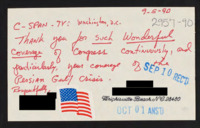 9-5-90
C-SPAN-TV: Washington, D.C.
2957-90
Thank you for such Wonderful
Coverage of Congress continuously, and
particularly, your coverage of the
(Persian Gulf) Crisis.
SEP 10 REC'D
Respectfully
Wrightsville Beach, N.C. 28480
OCT 01 ANS'D